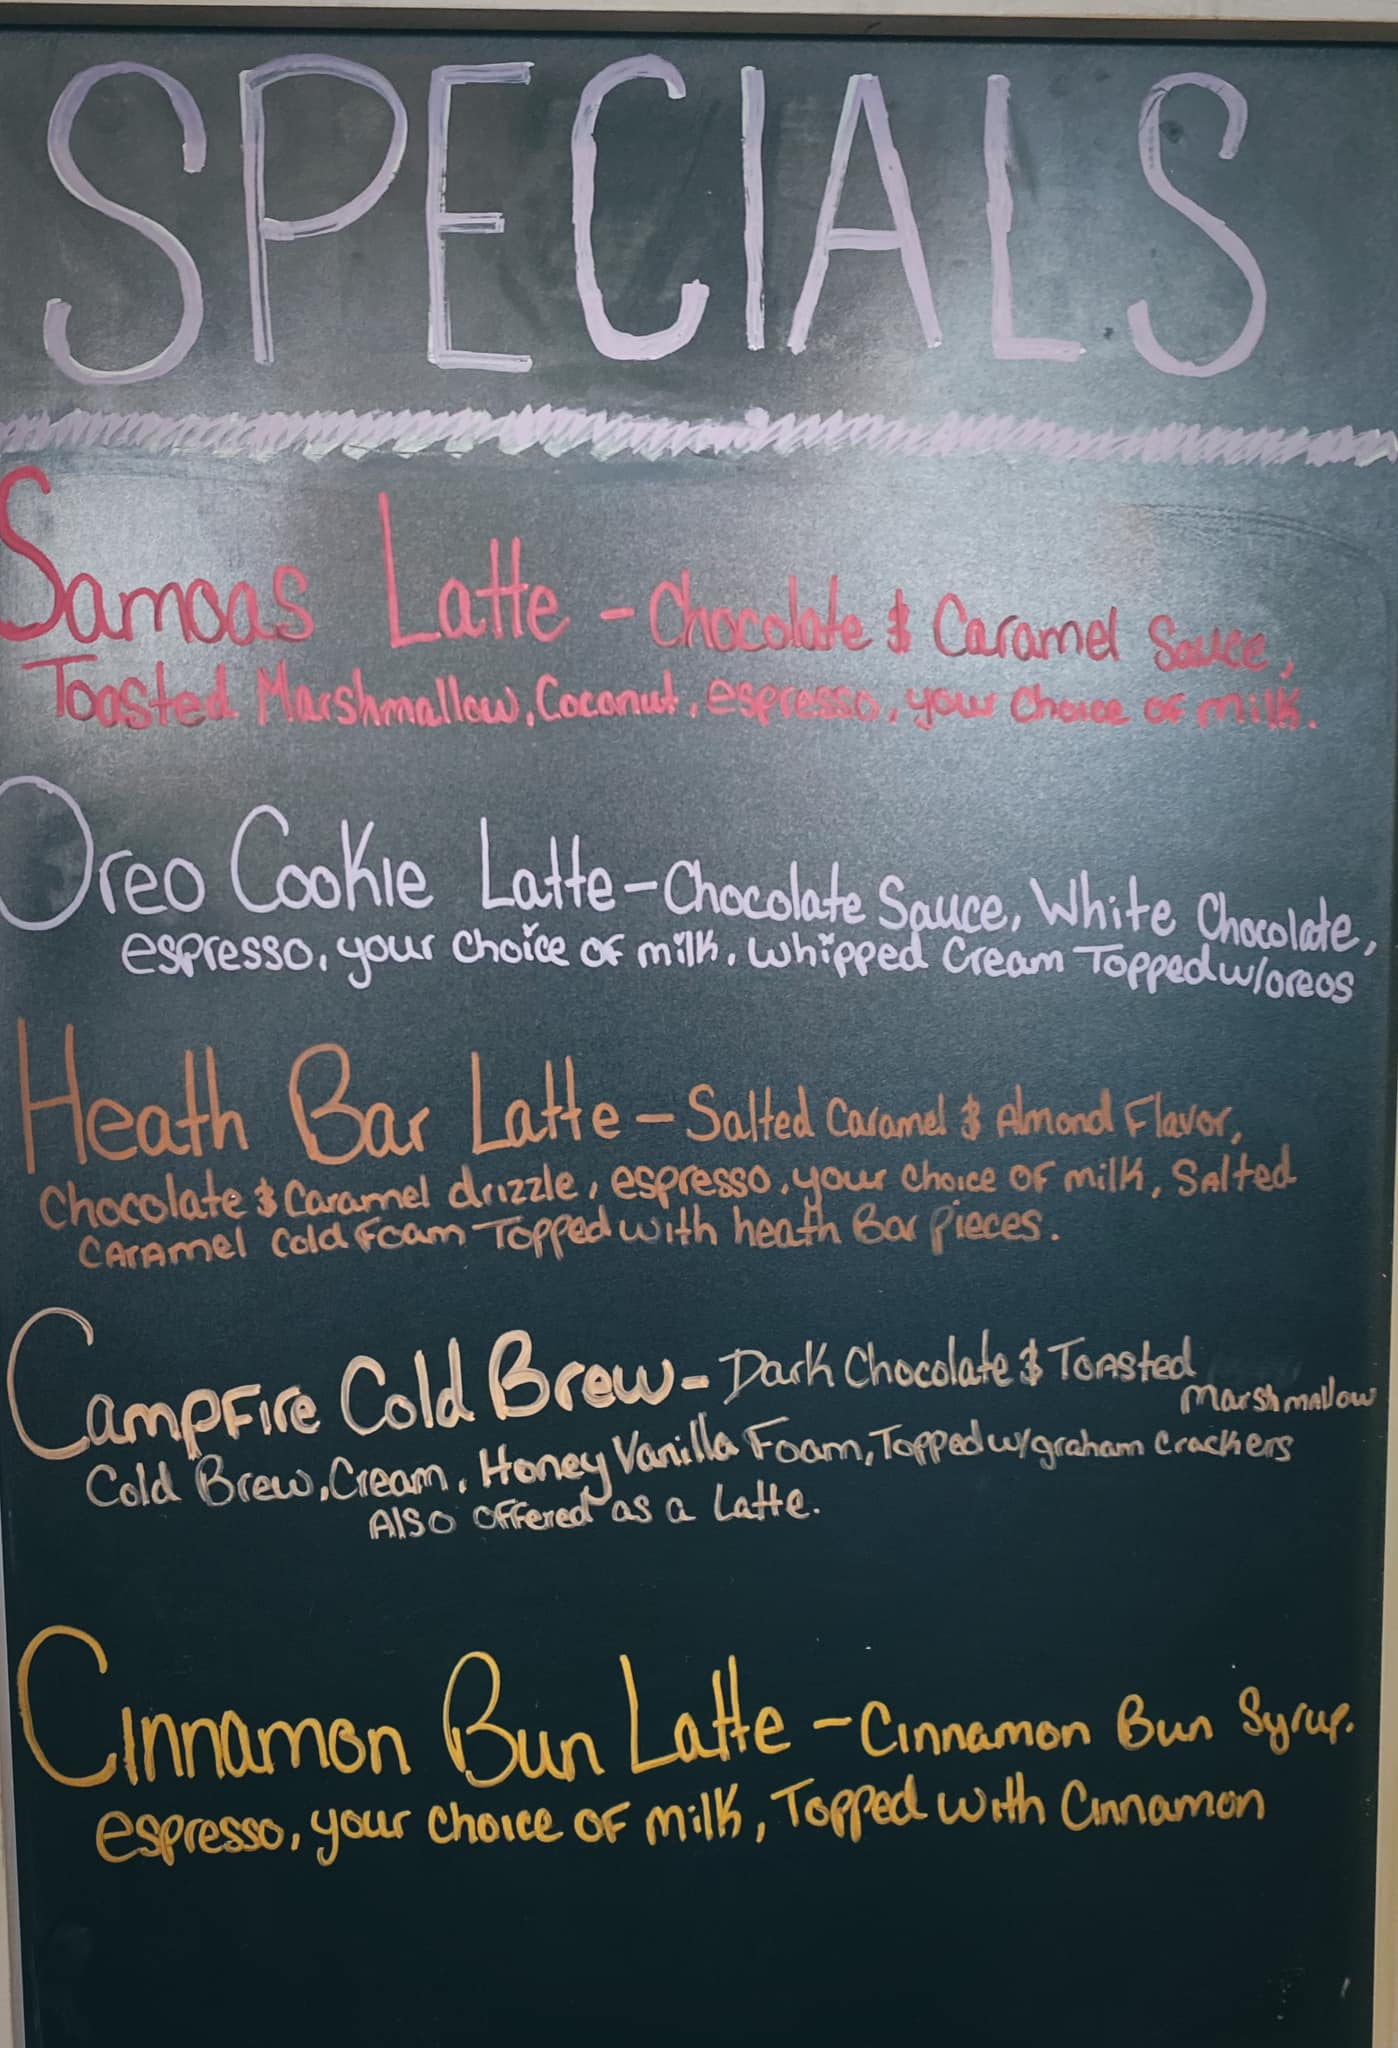 SPECIALS
Samoas Latte - Chocolate & Caramel Sauce,
Toasted Marshmallow, Coconut, espresso, your choice of milk.
Oreo Cookie Latte - Chocolate Sauce, White Chocolate,
espresso, your choice of milk, whipped Cream Topped w/oreos
Heath Bar Latte - Salted Caramel & Almond Flavor,
Chocolate & Caramel drizzle, espresso, your choice of milk, Salted
Caramel Cold Foam Topped with heath Bar pieces.
Campfire Cold Brew - Dark Chocolate & Toasted
Marshmallow
Cold Brew, Cream, Honey Vanilla Foam, Topped w/graham crackers
Also offered as a Latte.
Cinnamon Bun Latte - Cinnamon Bun Syrup,
espresso, your choice of milk, Topped with Cinnamon